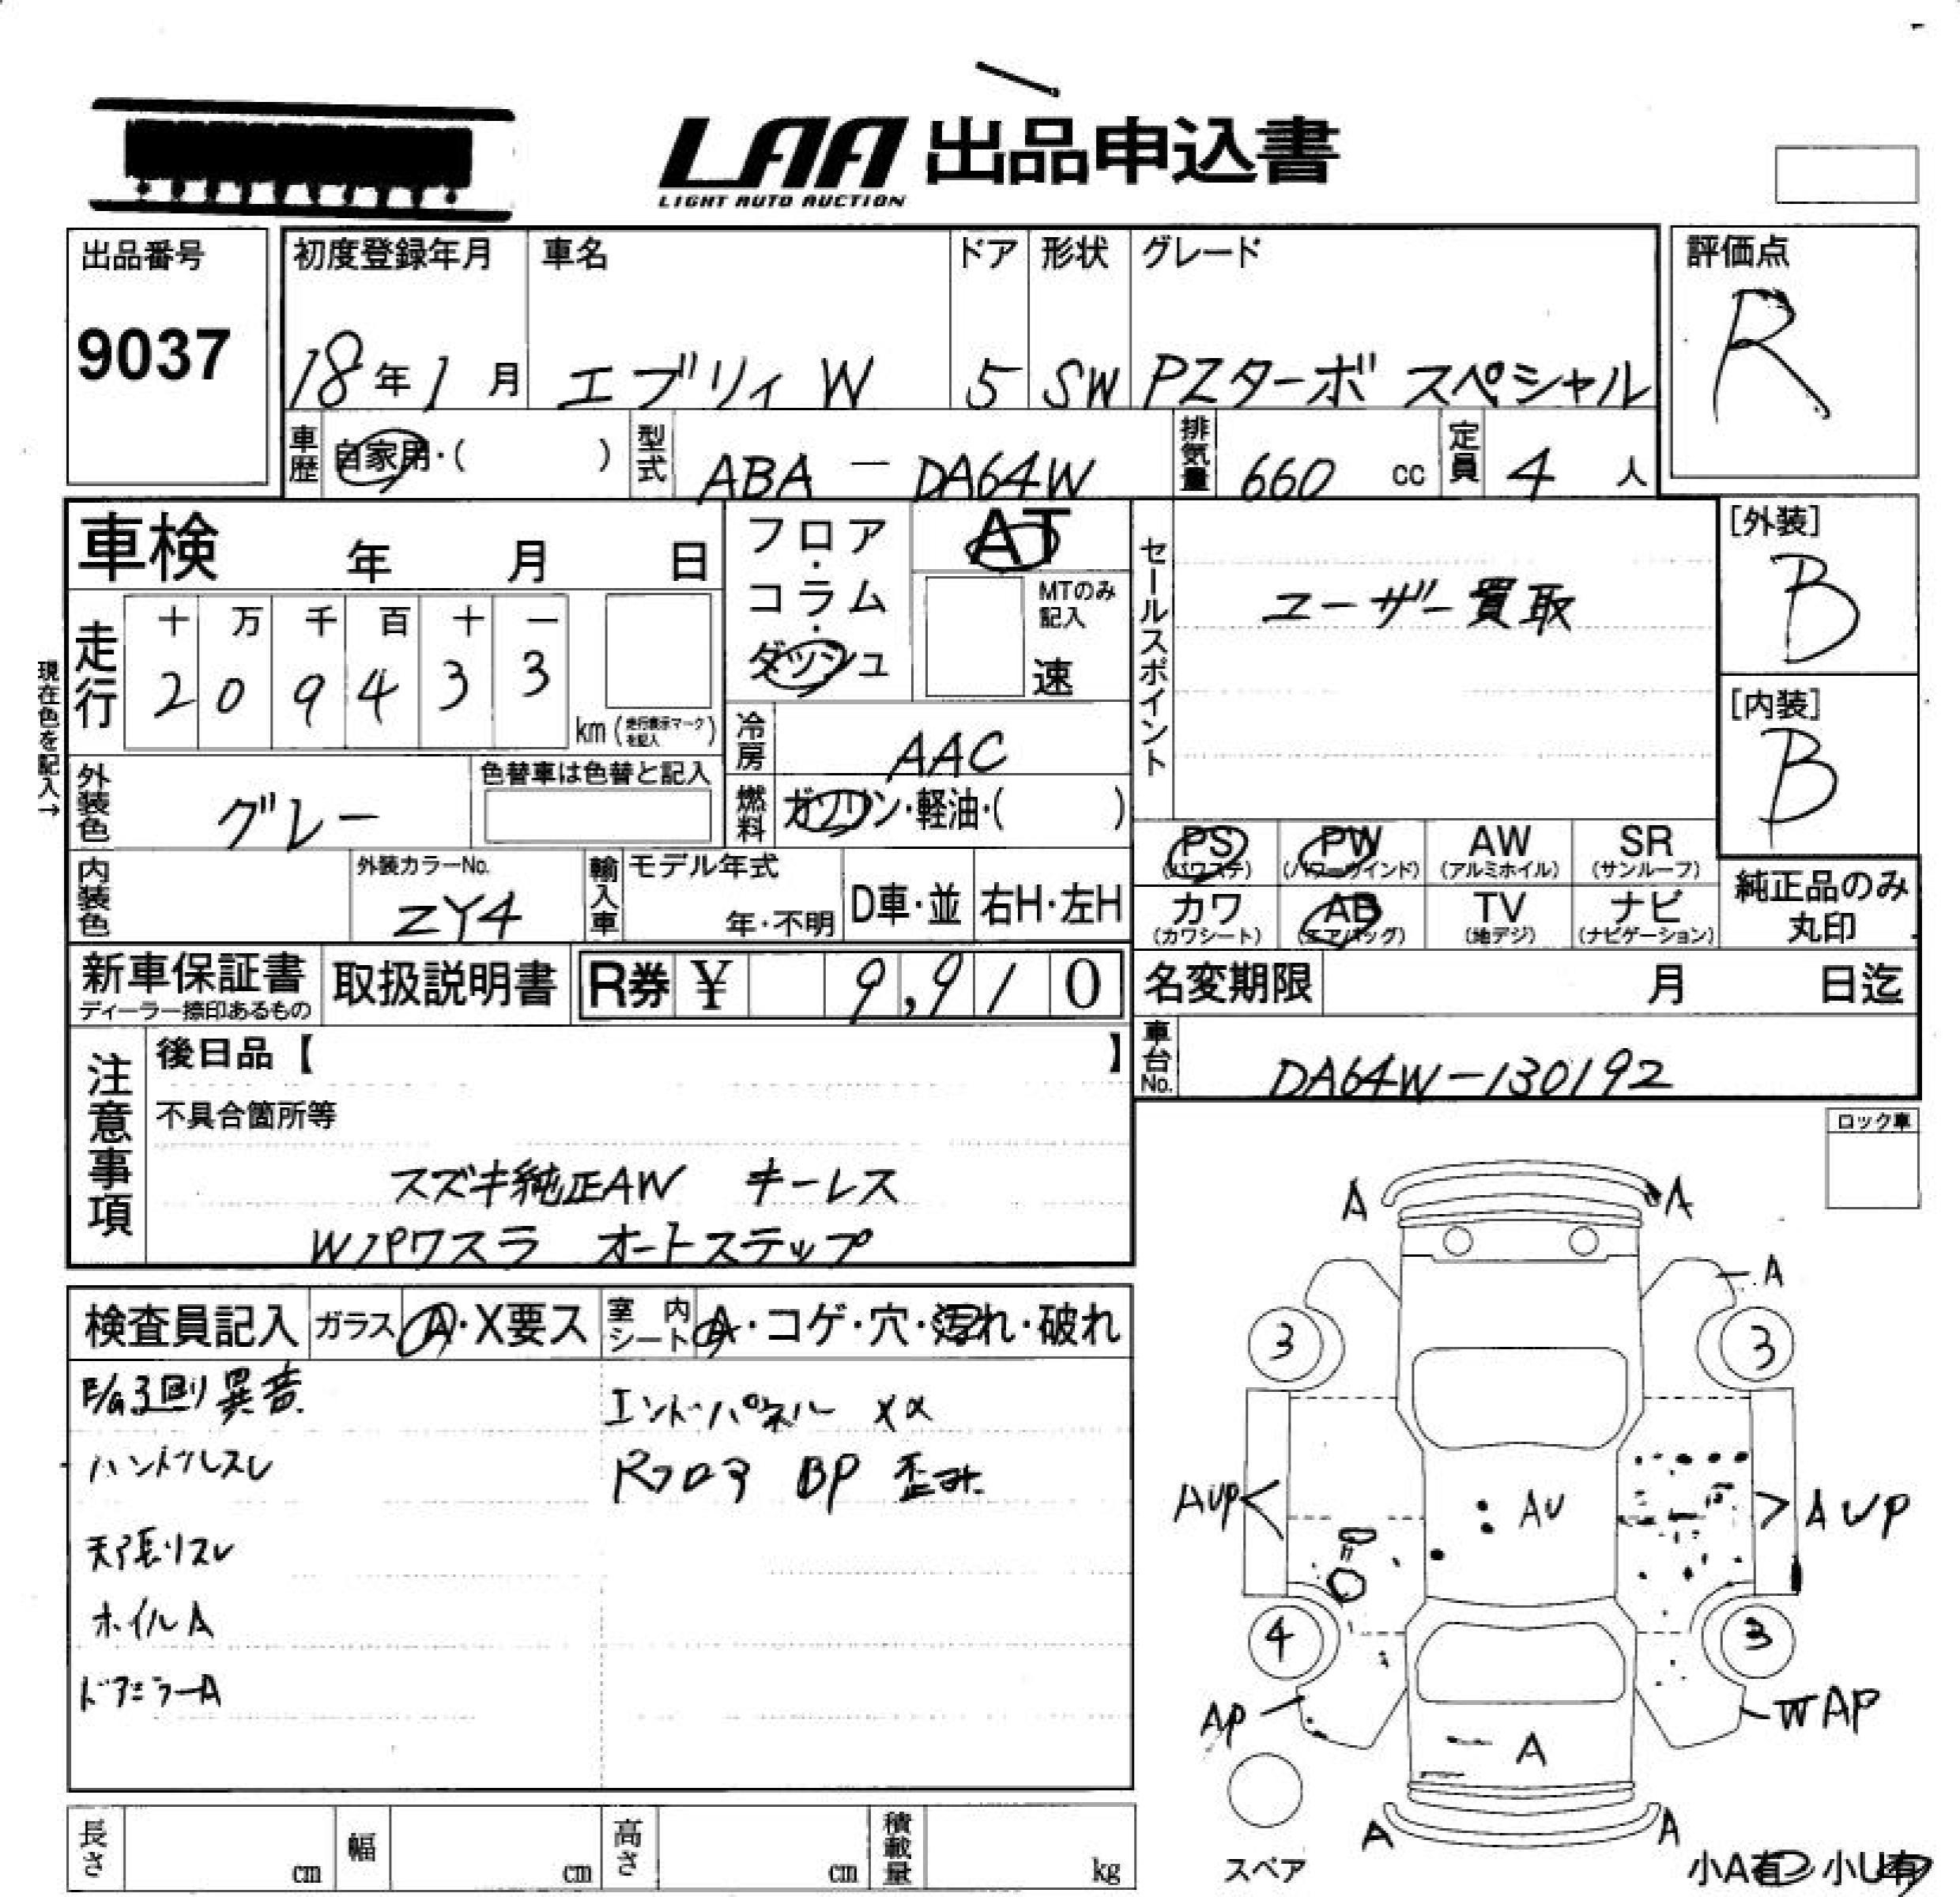 LAA 出品申込書
LIGHT AUTO AUCTION
出品番号
9037
初度登録年月
18年1月
車名
エブリィ W
ドア
5
形状
SW
グレード
PZターボ スペシャル
評価点
R
車歴
自家用・( )
型式
ABA - DA64W
排気量
660 cc
定員
4 人
車検 年 月 日
フロア・コラム・ダッシュ
AT
MTのみ記入
速
セールスポイント
ユーザー買取
[外装]
B
[内装]
B
現在色を記入→
走行
十 万 千 百 十 一
2 0 9 4 3 3
km (走行表示マークを記入)
冷房
AAC
燃料
ガソリン・軽油・( )
外装色
グレー
色替車は色替と記入
PS (パワステ)
PW (パワーウインド)
AW (アルミホイル)
SR (サンルーフ)
カワ (カワシート)
AB (エアバッグ)
TV (地デジ)
ナビ (ナビゲーション)
純正品のみ丸印
内装色
外装カラーNo.
ZY4
輸入車
モデル年式
年・不明
D車・並
右H・左H
新車保証書
ディーラー捺印あるもの
取扱説明書
R券 ¥ 9,910
名変期限 月 日迄
車台No.
DA64W-130192
注意事項
後日品【 】
不具合箇所等
スズキ純正AW キーレス
Wパワスラ オートステップ
ロック車
検査員記入
ガラス
A・X要ス
室内シート
A・コゲ・穴・汚れ・破れ
E/G廻り異音
ハンドルスレ
天張リスレ
ホイルA
ドアミラーA
エンドパネル XX
Rフロア BP 歪み
A
A
A
3
3
AUP
AU
AUP
4
3
AP
W AP
A
A
A
スペア
小A有 小U有
長さ cm
幅 cm
高さ cm
積載量 kg